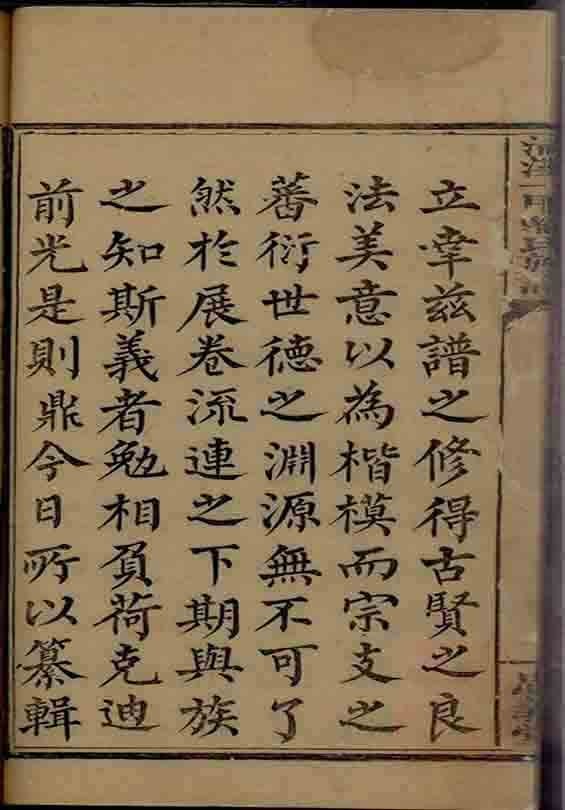 立幸茲譜之修得古賢之良
法美意以為楷模而宗支之
蕃衍世德之淵源無不可了
然於展卷流連之下期與族
之知斯義者勉相負荷克迪
前光是則鼎今日所以纂輯